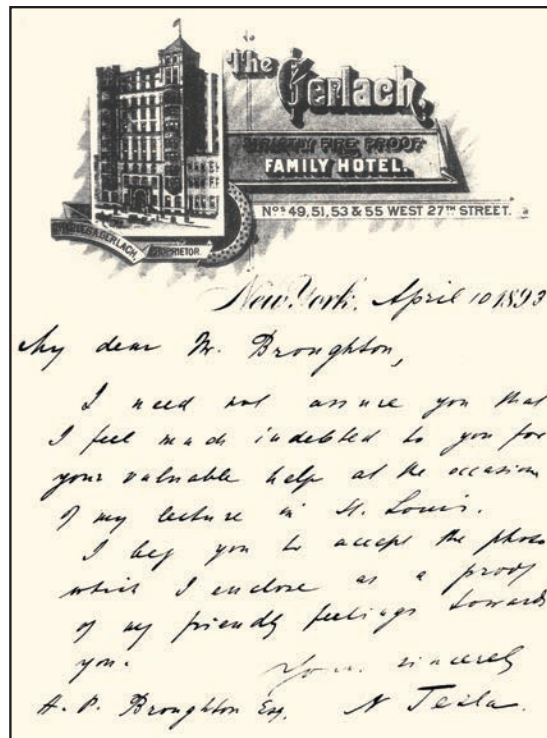 The Gerlach,
STRICTLY FIRE PROOF
FAMILY HOTEL.
Nos 49, 51, 53 & 55 WEST 27TH STREET.
CHARLES A. GERLACH, PROPRIETOR.
New York, April 10 1893
My dear Mr. Broughton,
I need not assure you that
I feel much indebted to you for
your valuable help at the occasion
of my lecture in St. Louis.
I beg you to accept the photo
which I enclose as a proof
of my friendly feelings towards
you.
Yours sincerely
A. P. Broughton Esq. N Tesla.